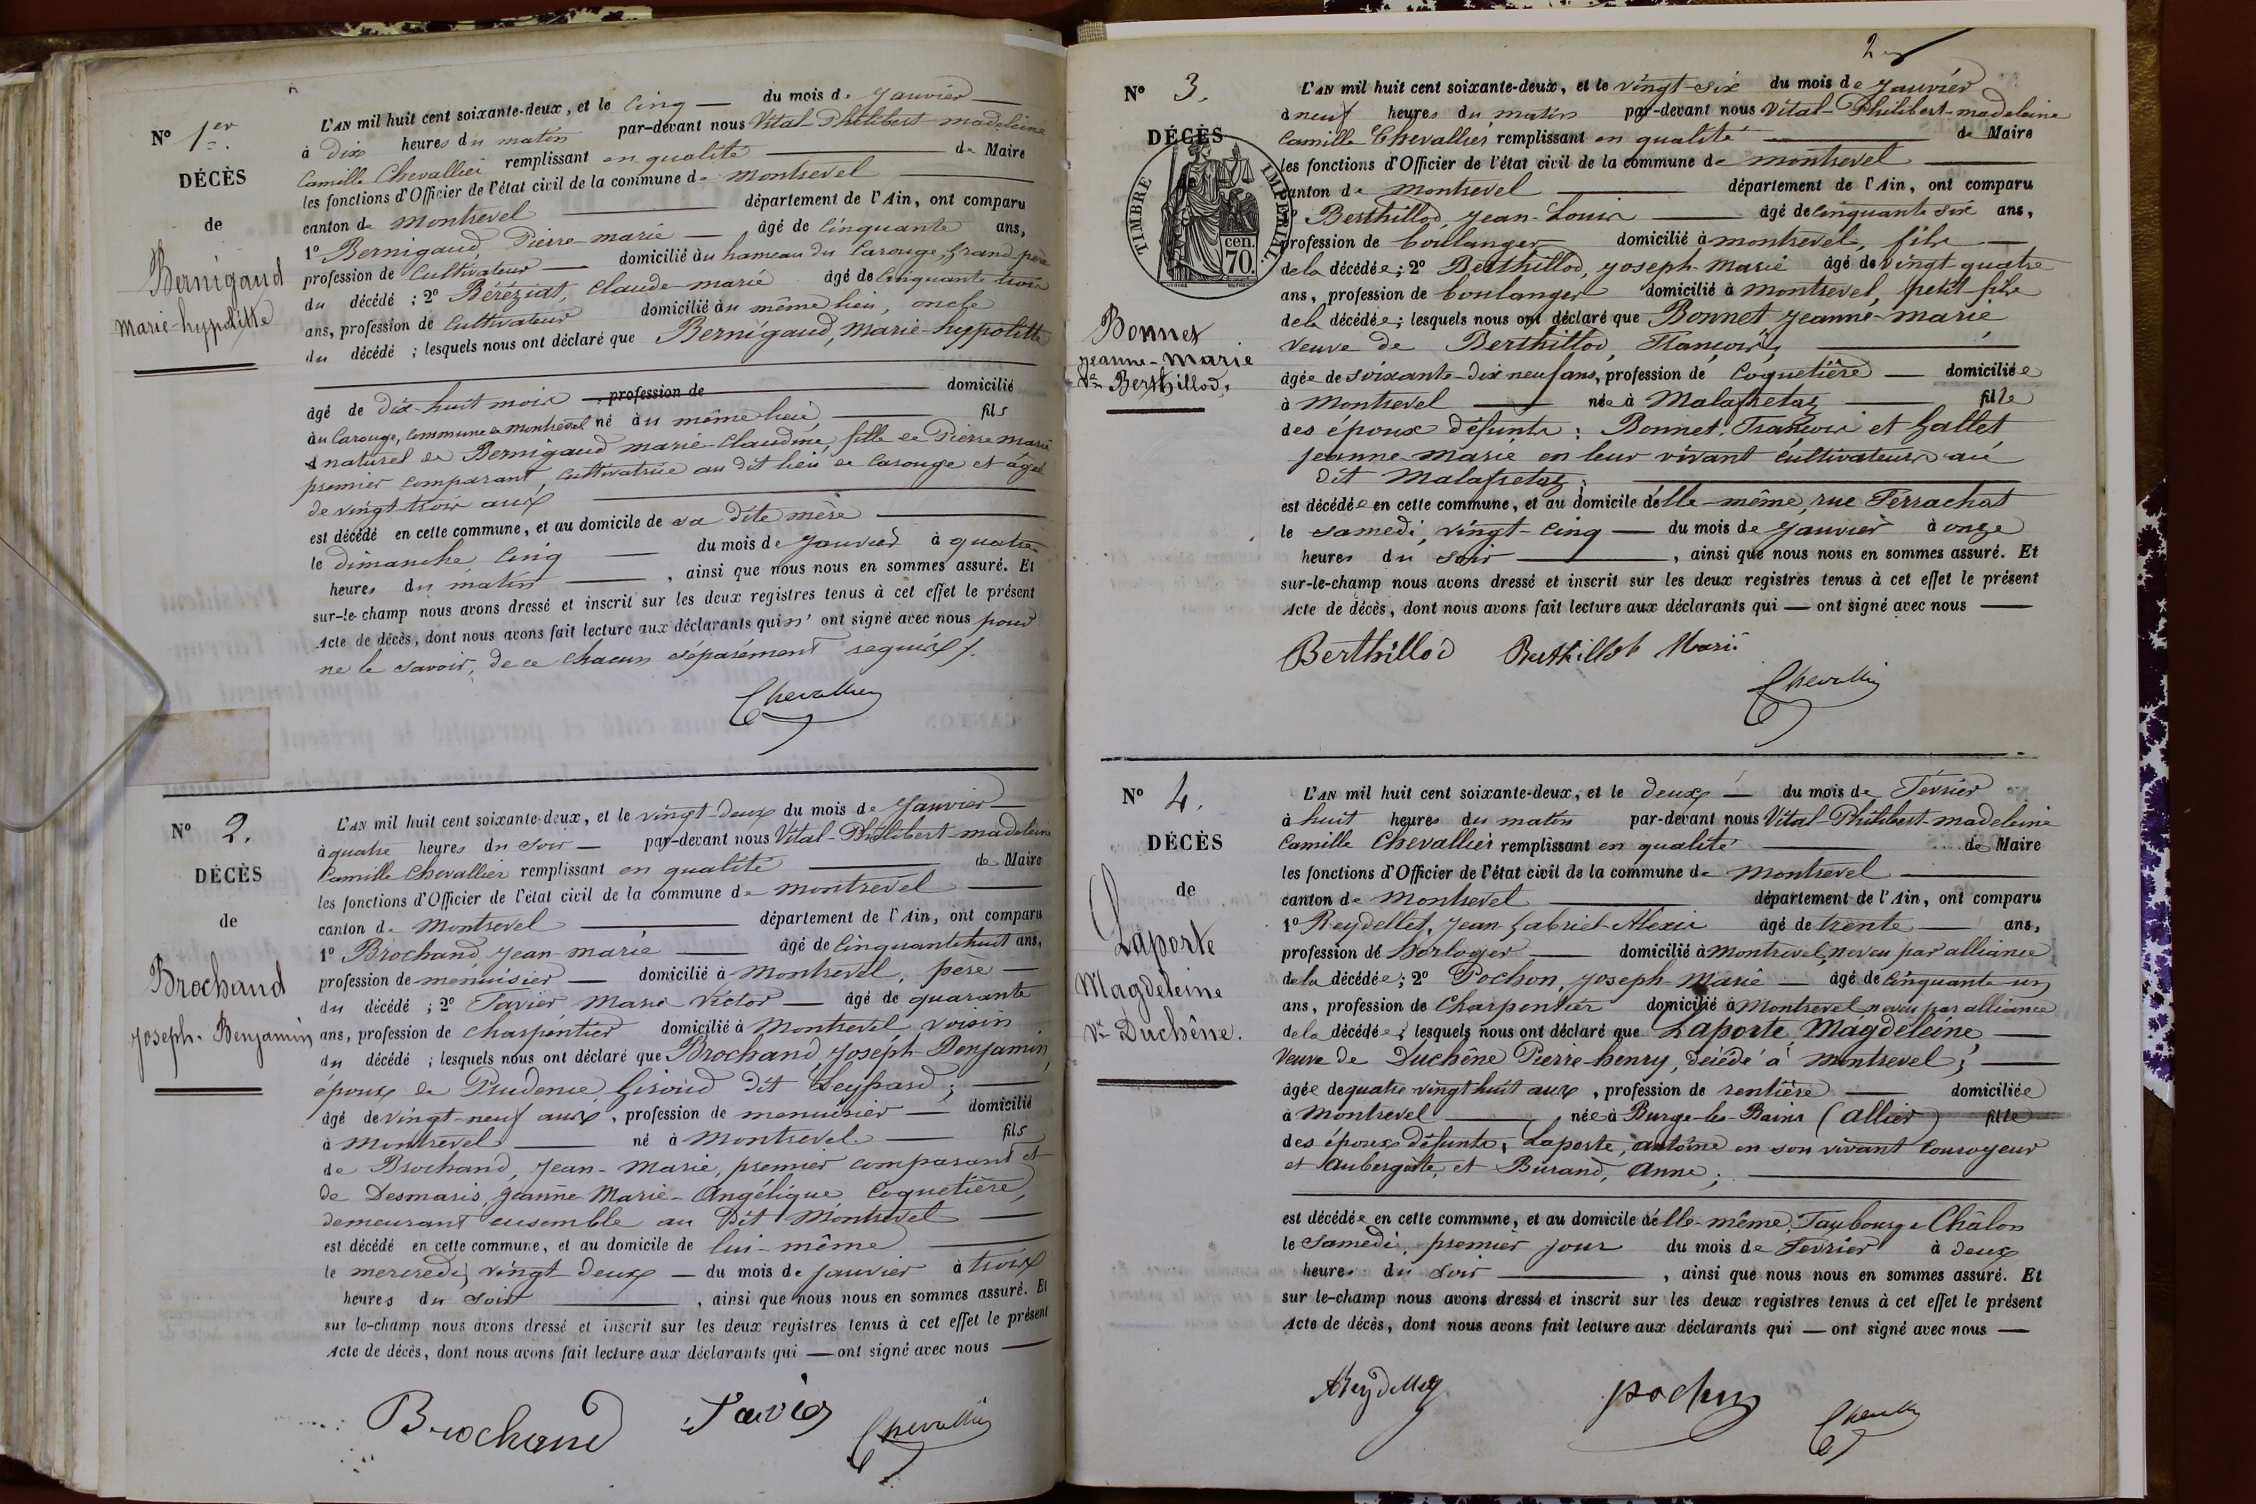 Nº 1er
DÉCÈS
de
Bernigaud
Marie-hypolitte
L'AN mil huit cent soixante-deux, et le cinq — du mois de Janvier —
à dix heures du matin par-devant nous Vital-Philibert-madeleine
Camille Chevallier remplissant en qualité — de Maire
les fonctions d'Officier de l'état civil de la commune de montrevel —
canton de montrevel — département de l'Ain, ont comparu
1º Bernigaud, Pierre-marie — âgé de cinquante ans,
profession de cultivateur — domicilié au hameau du Carouge, grand-père
du décédé ; 2º Béréziat, Claude-marie âgé de cinquante trois
ans, profession de cultivateur domicilié au même lieu, oncle
du décédé ; lesquels nous ont déclaré que Bernigaud, Marie-hypolitte
âgé de dix-huit mois profession de — domicilié
au Carouge, commune de montrevel né au même lieu, — fils
naturel de Bernigaud marie-Claudine fille de Pierre marie
premier comparant, cultivatrice au dit lieu de Carouge et âgée
de vingt-trois ans —
est décédé en cette commune, et au domicile de sa dite mère —
le dimanche, cinq — du mois de Janvier à quatre
heures du matin — , ainsi que nous nous en sommes assuré. Et
sur-le-champ nous avons dressé et inscrit sur les deux registres tenus à cet effet le présent
Acte de décès, dont nous avons fait lecture aux déclarants qui n' ont signé avec nous pour
ne le savoir, de ce chacun séparément requis /.
Chevallier
Nº 2.
DÉCÈS
de
Brochand
Joseph-Benjamin
L'AN mil huit cent soixante-deux, et le vingt-deux du mois de Janvier —
à quatre heures du soir — par-devant nous Vital-Philibert-madeleine
Camille Chevallier remplissant en qualité — de Maire
les fonctions d'Officier de l'état civil de la commune de montrevel —
canton de Montrevel — département de l'Ain, ont comparu
1º Brochand Jean-marie — âgé de cinquante huit ans,
profession de menuisier — domicilié à Montrevel, père —
du décédé ; 2º Favier Marie Victor — âgé de quarante
ans, profession de charpentier domicilié à Montrevel, voisin
du décédé ; lesquels nous ont déclaré que Brochand, Joseph-Benjamin,
époux de Prudence Giroud dit Leyssard ; —
âgé de vingt-neuf ans, profession de menuisier — domicilié
à Montrevel — né à Montrevel — fils
de Brochand, Jean-Marie, premier comparant et
de Desmaris, Jeanne-Marie-Angélique Coquetière,
demeurant ensemble au dit Montrevel —
est décédé en cette commune, et au domicile de lui-même —
le mercredi vingt deux — du mois de Janvier à trois
heures du soir — , ainsi que nous nous en sommes assuré. Et
sur le-champ nous avons dressé et inscrit sur les deux registres tenus à cet effet le présent
Acte de décès, dont nous avons fait lecture aux déclarants qui — ont signé avec nous —
Brochand Favier Chevallier
2
Nº 3.
DÉCÈS
TIMBRE IMPÉRIAL
70. cen.
Bonnet
Jeanne-Marie
Ve Berthillod.
L'AN mil huit cent soixante-deux, et le vingt-six du mois de Janvier
à neuf heures du matin par-devant nous Vital-Philibert-madeleine
Camille Chevallier remplissant en qualité — de Maire
les fonctions d'Officier de l'état civil de la commune de montrevel —
canton de Montrevel — département de l'Ain, ont comparu
1º Berthillod, Jean-Louis — âgé de cinquante six ans,
profession de boulanger domicilié à montrevel, fils —
de la décédée ; 2º Berthillod, Joseph-Marie âgé de vingt-quatre
ans, profession de boulanger domicilié à Montrevel, petit-fils
de la décédée ; lesquels nous ont déclaré que Bonnet Jeanne-marie
veuve de Berthillod, François, —
âgée de soixante-dix neuf ans, profession de Coquetière — domiciliée
à Montrevel — née à Malafretaz — fille
des époux défunts : Bonnet. François et Gallet
Jeanne-Marie en leur vivant cultivateurs au
dit Malafretaz ; —
est décédée en cette commune, et au domicile d'elle-même, rue Ferrachat
le samedi, vingt-cinq — du mois de Janvier à onze
heures du soir — , ainsi que nous nous en sommes assuré. Et
sur-le-champ nous avons dressé et inscrit sur les deux registres tenus à cet effet le présent
Acte de décès, dont nous avons fait lecture aux déclarants qui — ont signé avec nous —
Berthillod Berthillod Marie
Chevallier
Nº 4.
DÉCÈS
de
Laporte
Magdeleine
Ve Duchêne.
L'AN mil huit cent soixante-deux, et le deux — du mois de Février
à huit heures du matin par-devant nous Vital-Philibert-madeleine
Camille Chevallier remplissant en qualité — de Maire
les fonctions d'Officier de l'état civil de la commune de Montrevel —
canton de Montrevel — département de l'Ain, ont comparu
1º Reydellet, Jean Gabriel-Alexis âgé de trente — ans,
profession de horloger — domicilié à Montrevel, neveu par alliance
de la décédée ; 2º Pochon, Joseph-Marie — âgé de cinquante un
ans, profession de Charpentier domicilié à Montrevel neveu par alliance
de la décédée ; lesquels nous ont déclaré que Laporte Magdeleine —
Veuve de Duchêne Pierre-henry, décédé à montrevel ; —
âgée de quatre vingt huit ans, profession de rentière — domiciliée
à Montrevel — née à Burge-les-Bains (Allier) fille
des époux défunts, Laporte, Antoine en son vivant couroyeur
et Aubergiste, et Burand, Anne ; —
est décédée en cette commune, et au domicile d'elle-même, Faubourg de Châlon
le Samedi, premier jour du mois de Février à deux
heures du soir — , ainsi que nous nous en sommes assuré. Et
sur le-champ nous avons dressé et inscrit sur les deux registres tenus à cet effet le présent
Acte de décès, dont nous avons fait lecture aux déclarants qui — ont signé avec nous —
AReydellet pochon Chevallier